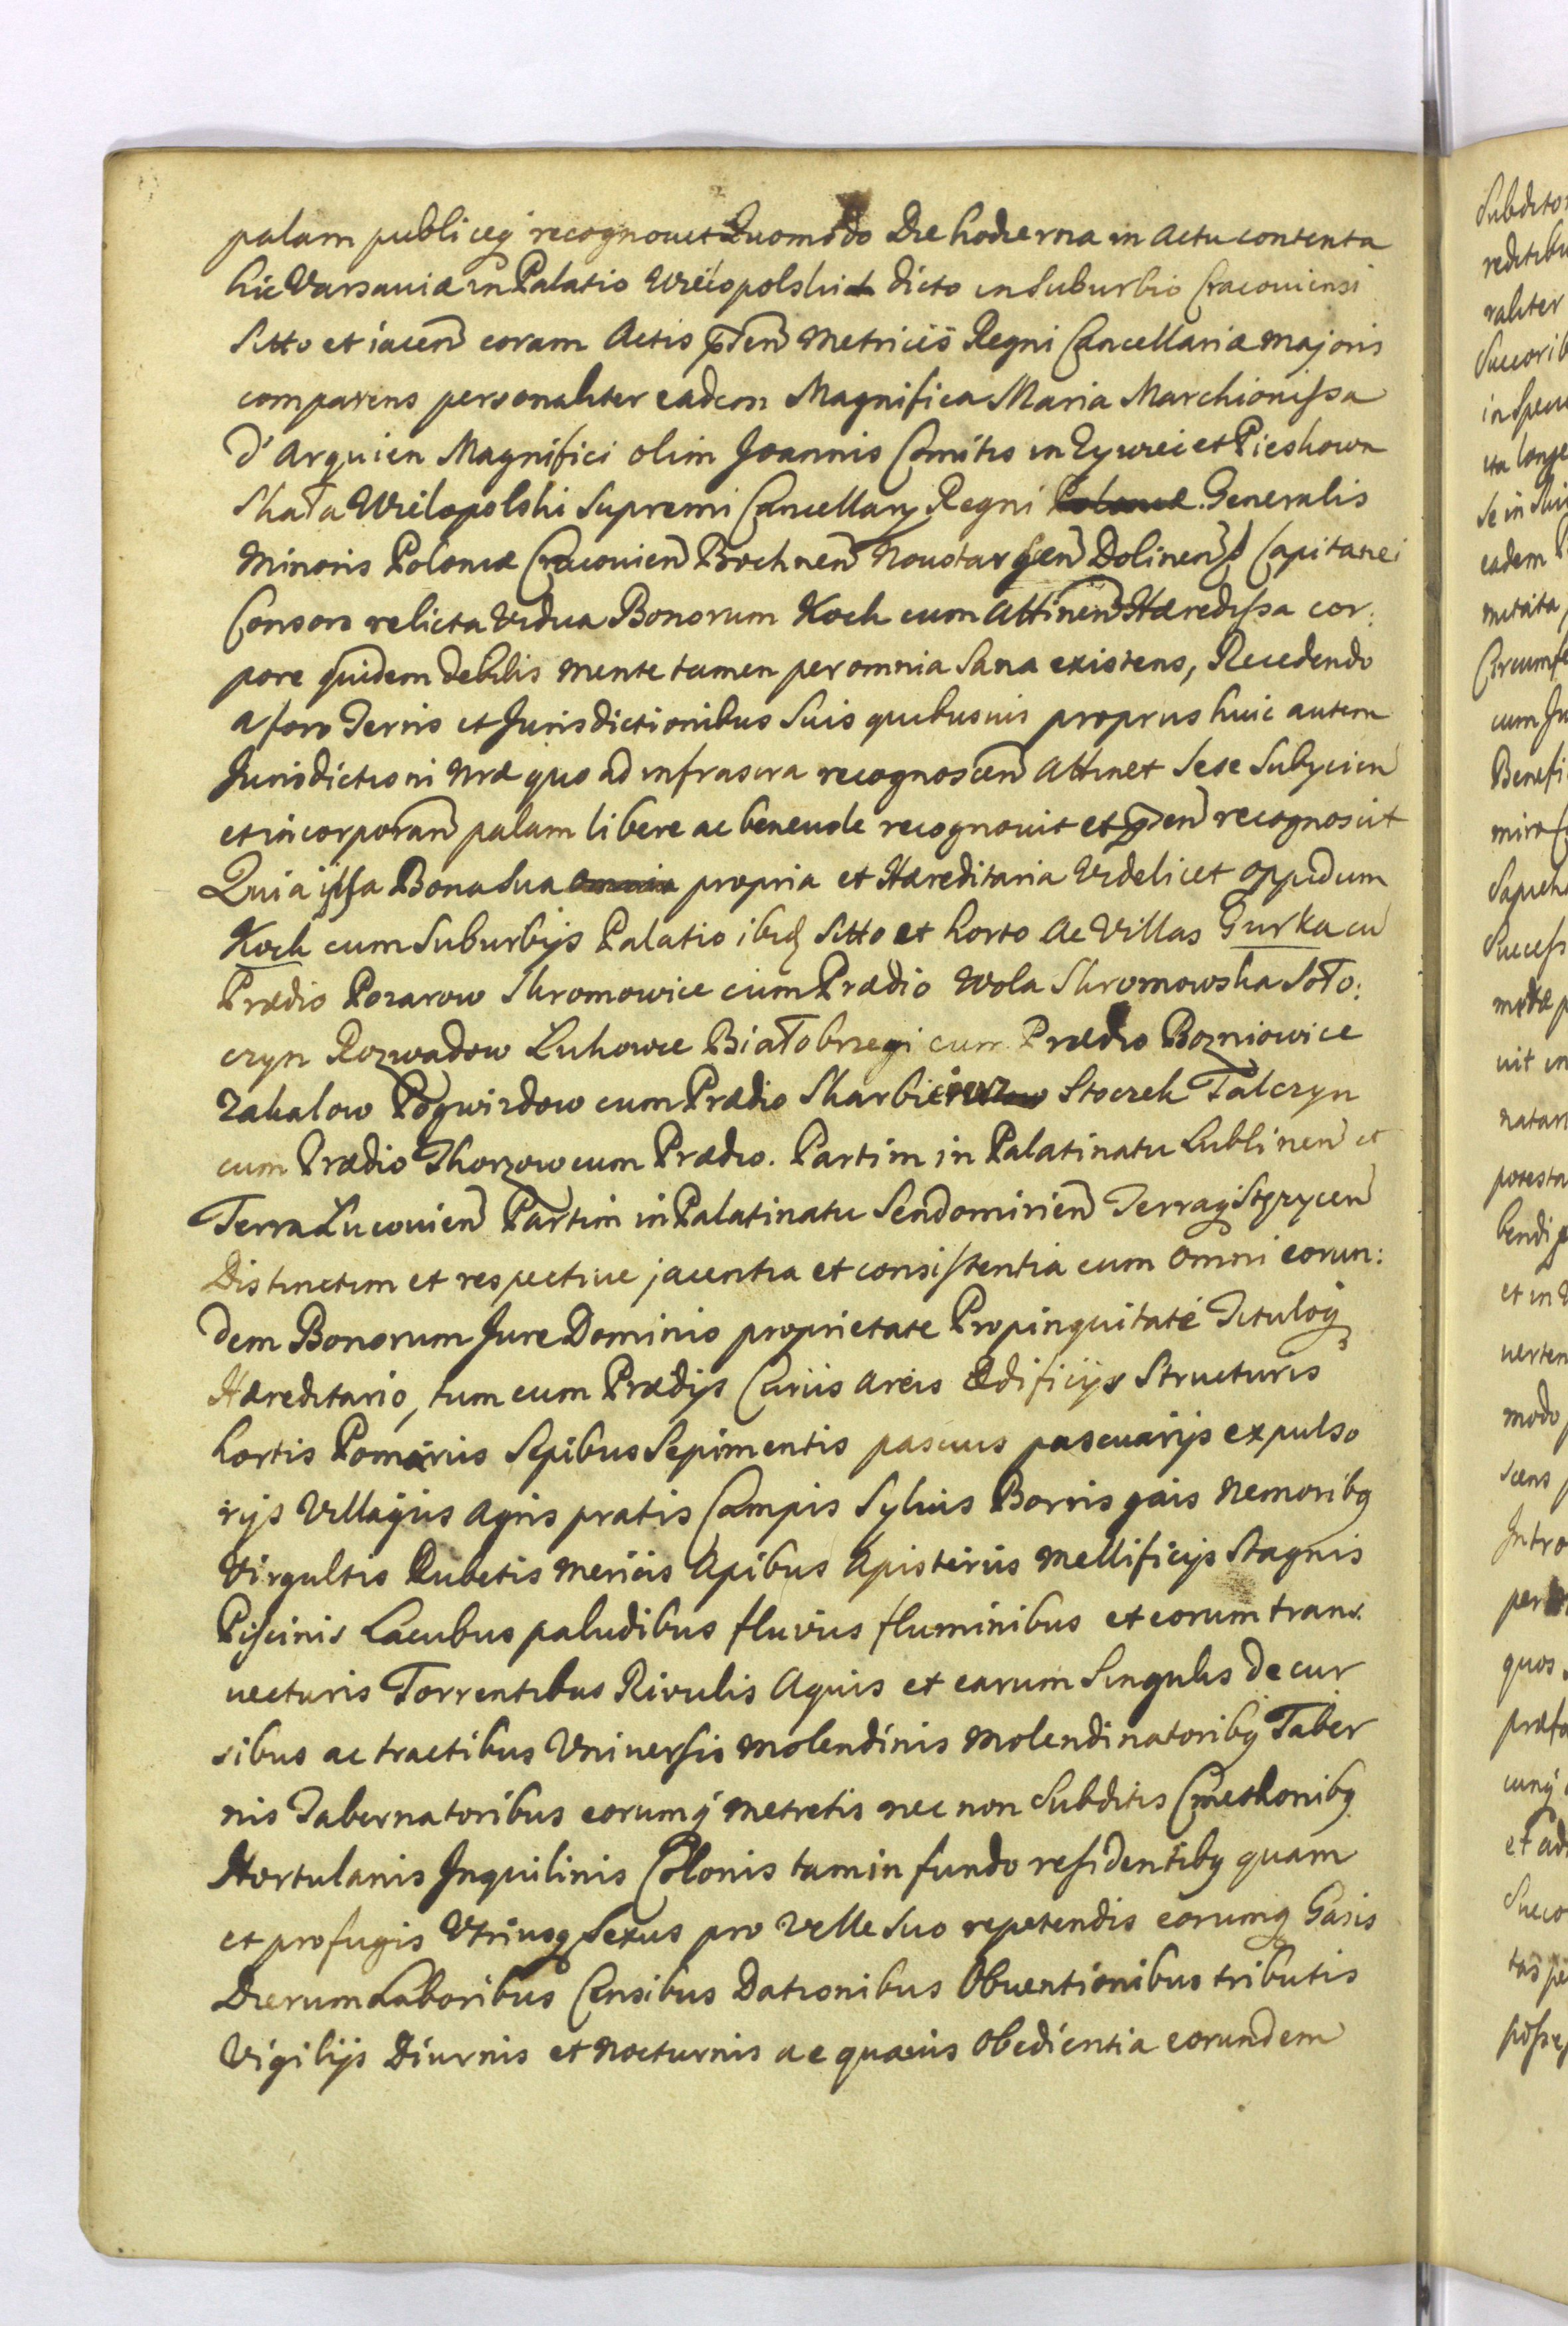 palam publiceq recognouit Quomodo Die hodierna in Actu contenta
hic Varsauiæ in Palatio Wielopolski dicto in Suburbio Cracouiensi
Sitto et iacen coram Actis pnten Metricis Regni Cancellariæ majoris
comparens personaliter eadem Magnifica Maria Marchionissa
d'Arquien Magnifici olim Joannis Comitis in Zywiei et Pieskowa
Skała Wielopolski Supremi Cancellarij Regni Poloniæ Generalis
Minoris Poloniæ Cracouien Bochnen Noustargen Dolinen Capitanei
Consors relicta Vidua Bonorum Kock cum Attinen Hæredissa cor:
pore quidem debilis mente tamen per omnia Sana existens, Recedendo
a foro Terris et Jurisdictionibus Suis quibusuis proprijs huic autem
Jurisdictioni Nræ quo ad infrascra recognoscen Attinet Sese Subycien
et incorporan palam libere ac beneuole recognouit et pnten recognoscit
Quia ipsa Bona Sua omnia propria et Hæreditaria Videlicet Oppidum
Kock cum Suburbijs Palatio ibid Sitto et horto ac Villas Gurka cu
Prædio Pozarow Skromowice cum Prædio Wola Skromowska Soło:
czyn Rozwadow Lukowce Białobrzegi cum Prædio Bozniowice
Zakalow Pogwizdow cum Prædio Skarbiciesz Stoczek Talczyn
cum Prædio Thorzow cum Prædio. Partim in Palatinatu Lublinen et
Terra Lucouien Partim in Palatinatu Sendomirien Terraq Stęzycen
Distinctim et respectiue jacentia et consistentia cum Omni eorun:
dem Bonorum Jure Dominio proprietate Propinquitate Tituloq
Hæreditario, tum cum Prædijs Curiis areis Ædificijs Structuris
hortis Pomariis Sepibus Sepimentis pascuis pascuarijs expulso
rijs Villagiis Agris pratis Campis Syluis Borris gais Nemoribq
Virgultis Rubetis Mericis Apibus Apisteriis Mellificijs Stagnis
Piscinis Lacubus paludibus fluviis fluminibus et eorum trans
uecturis Torrentibus Rivulis Aquis et earum Singulis decur
sibus ac tractibus Vniuersis Molendinis Molendinatoribq Taber
nis Tabernatoribus eorumq Metretis nec non Subditis Cmethonibq
Hortulanis Inquilinis Colonis tam in fundo residentibq quam
et profugis Vtriusq Sexus pro Velle Suo repetendis eorumq Gasis
Dierum Laboribus Censibus Dationibus Obuentionibus tributis
Vigilijs Diurnis et Nocturnis ac quauis Obedientia eorundem